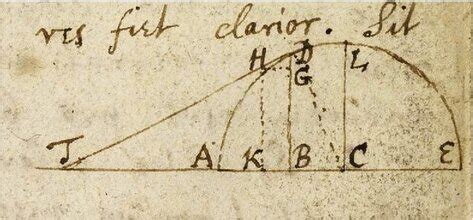 res fiet clarior. Sit
H D L
G
T A K B C E